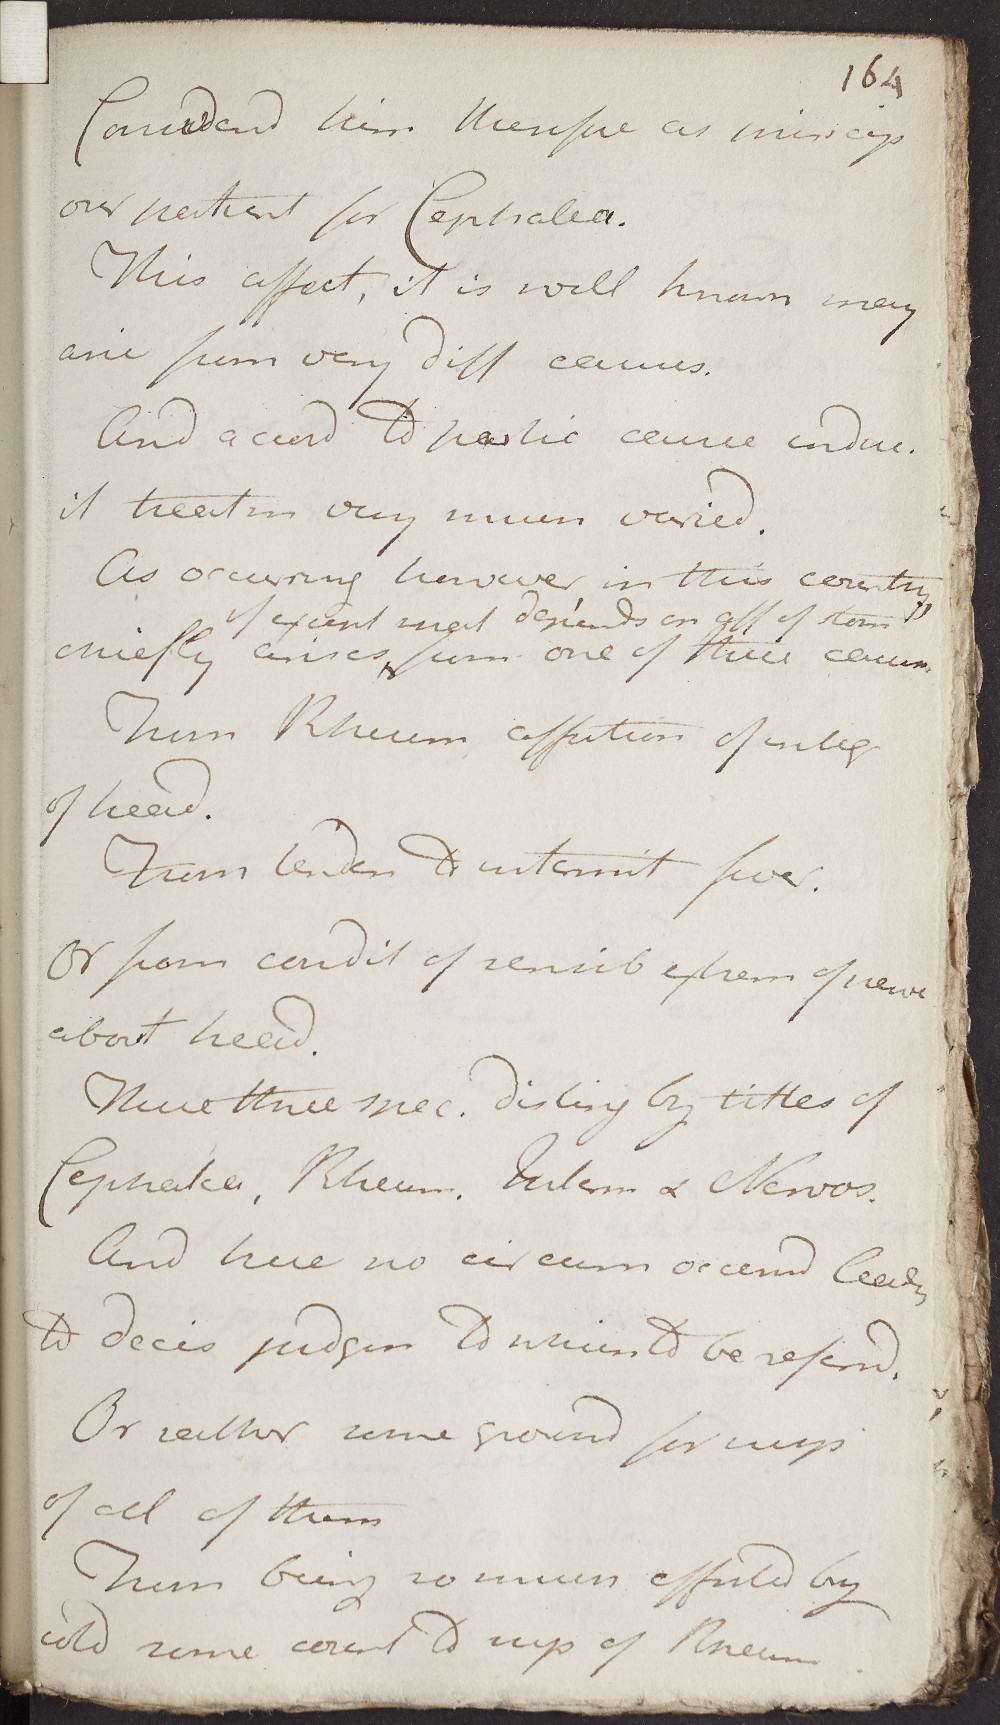 164
Considerd him therefore as princip
our patient for Cephalea.
This affect, it is well known may
arise from very diff causes.
And accord to partic cause induc.
it treatm very much varied.
As occurring however, in this country
if except what depends on aff of stom
chiefly arises from one of three causes
From Rheum affection of integ
of head.
From tenden to intermit fever.
Or from condit of sensib extrem of nerve
about head.
These three spec. disting by titles of
Cephalea, Rheum. Interm & Nervos.
And here no circum occurrd leadg
to decis judgm to which to be referrd.
Or rather some ground for susp
of all of them
From being so much affected by
cold some count to susp of Rheum